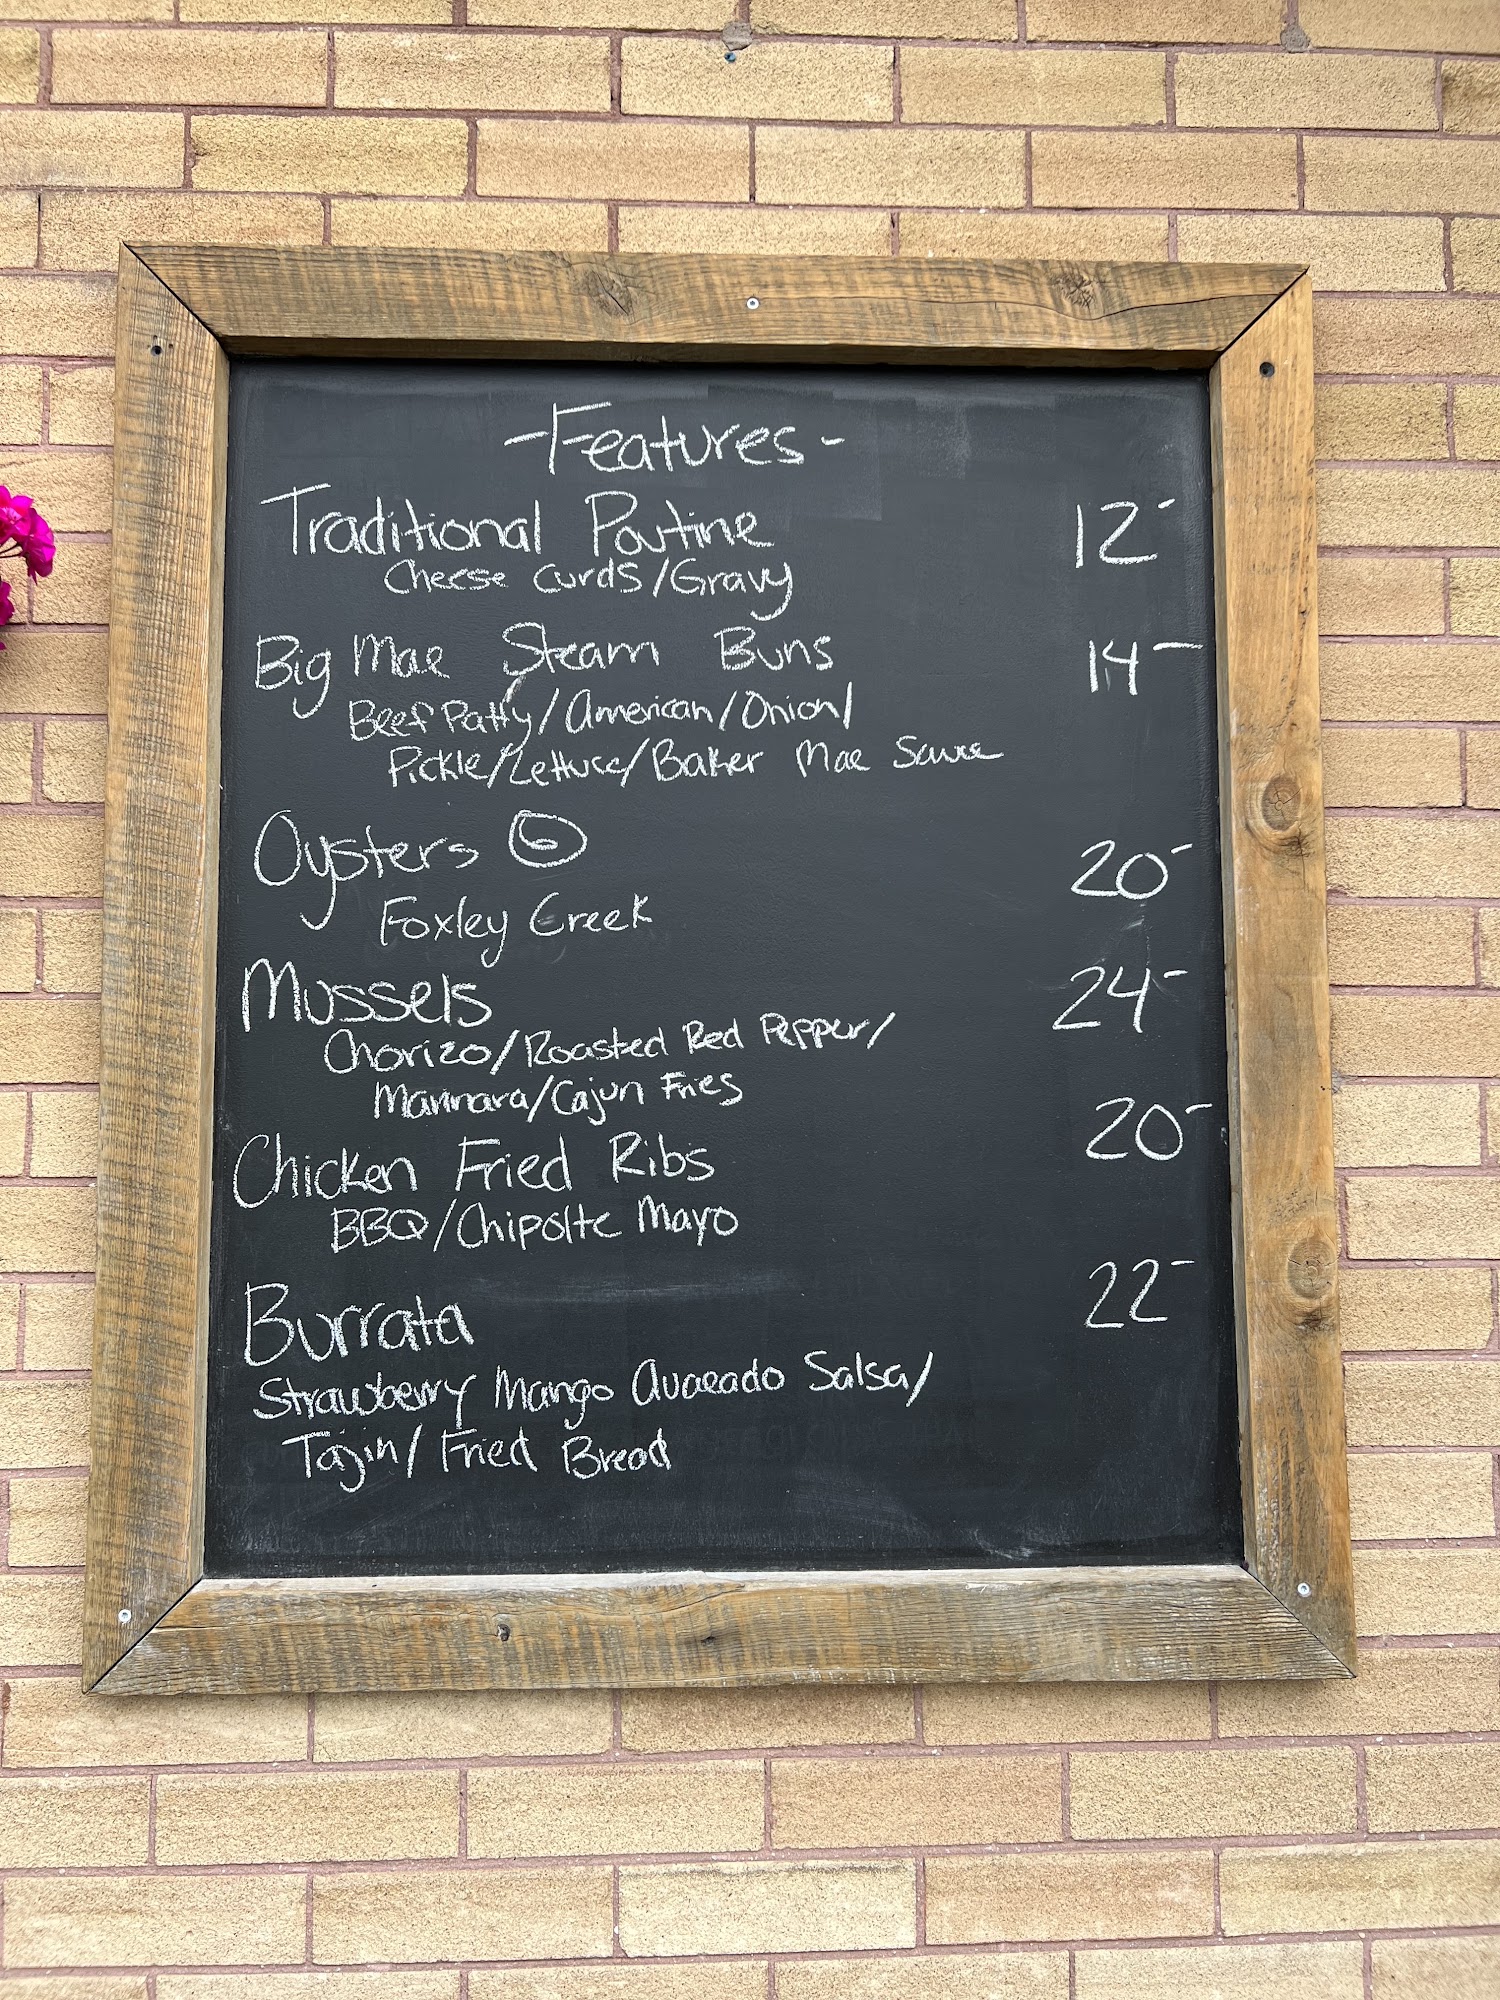 -Features-
Traditional Poutine 12-
Cheese Curds/Gravy
Big Mae Steam Buns 14-
Beef Patty/American/Onion/
Pickle/Lettuce/Baker Mae Sauce
Oysters 6 20-
Foxley Creek
Mussels 24-
Chorizo/Roasted Red Pepper/
Marinara/Cajun Fries
Chicken Fried Ribs 20-
BBQ/Chipolte Mayo
Burrata 22-
Strawberry Mango Avacado Salsa/
Tajin/Fried Bread